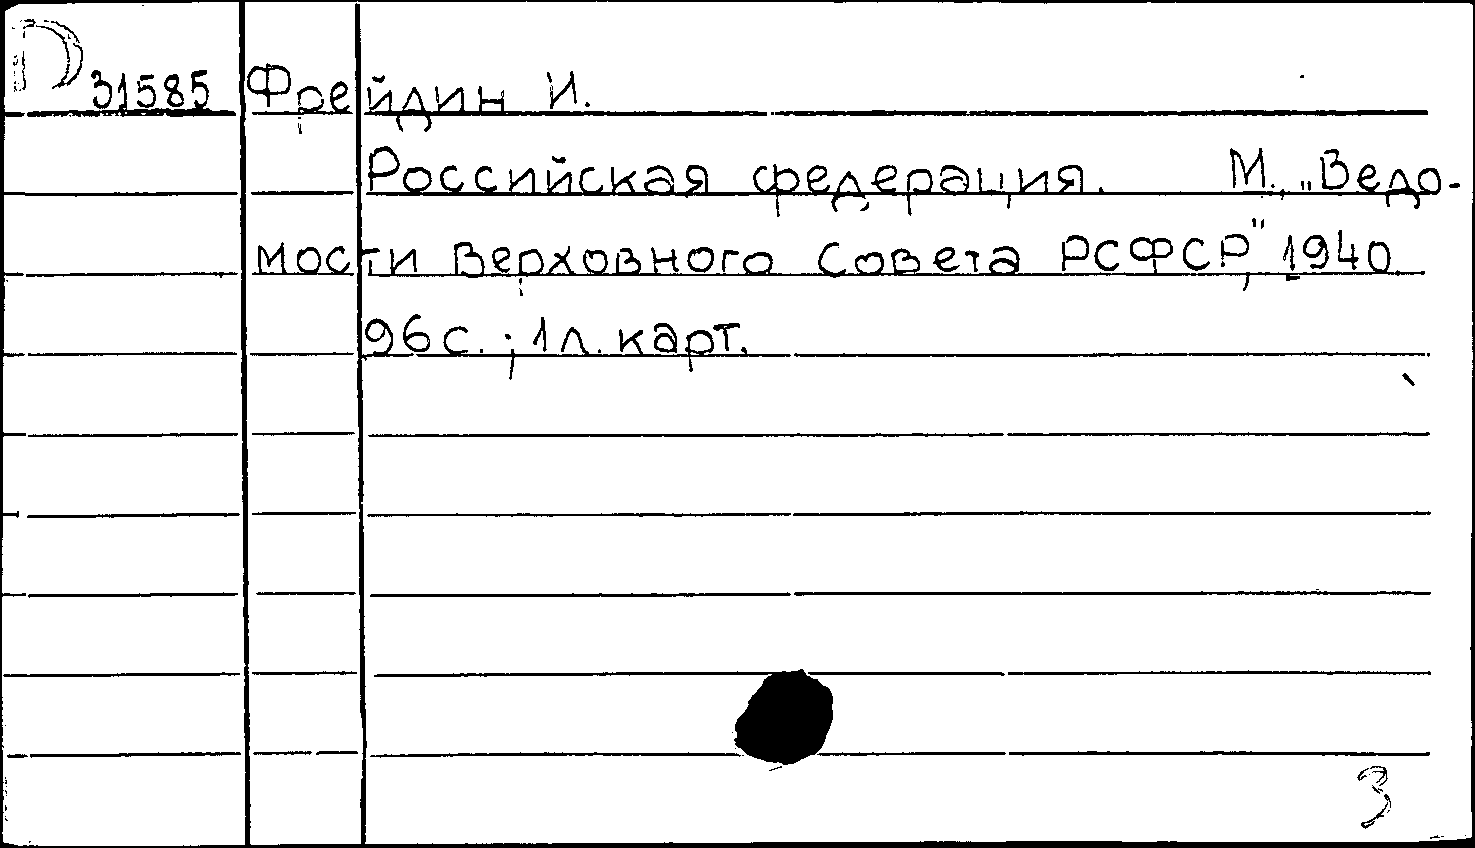 D 31585 Фрейдин И.
Российская федерация. М., „Ведо-
мости Верховного Совета РСФСР", 1940.
96 с.; 1 л. карт.
3